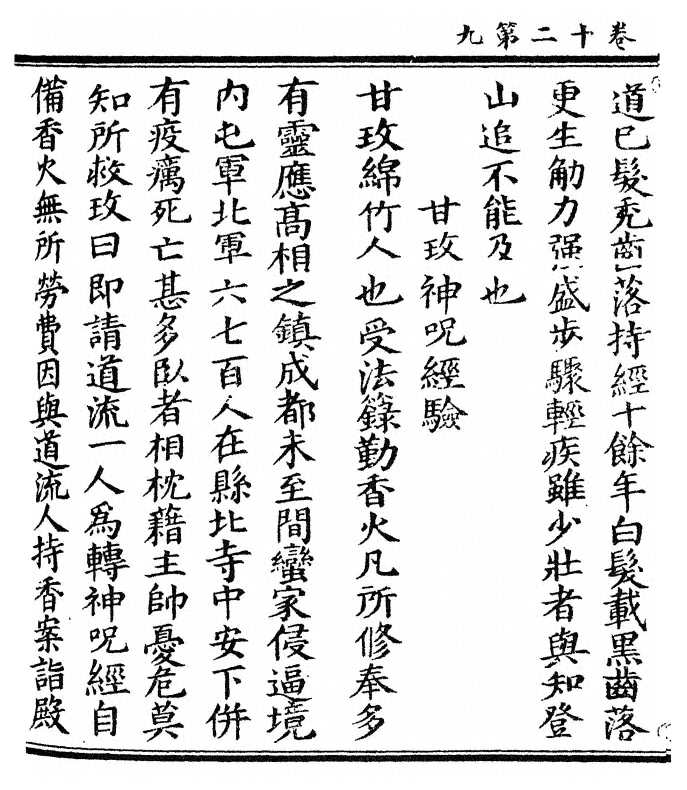 卷十二第九
道已髮禿齒落持經十餘年白髮載黑齒落
更生觔力强盛步驟輕疾雖少壯者與知登
山追不能及也
甘玫神呪經驗
甘玫綿竹人也受法籙勤香火凡所修奉多
有靈應髙相之鎮成都未至間蠻家侵逼境
内屯軍北軍六七百人在縣北寺中安下併
有疫癘死亡甚多臥者相枕藉主帥憂危莫
知所救玫曰即請道流一人爲轉神呪經自
備香火無所勞費因與道流人持香案詣殿